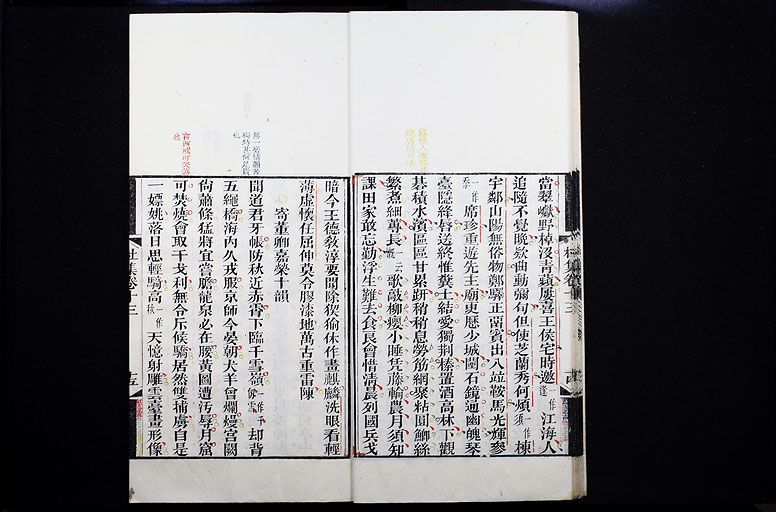 當翠巘野棹没青蘋屢喜王侯宅時邀一作逢江海人
追隨不覺晚欸曲動彌旬但使芝蘭秀何煩一作須棟
宇鄰山陽無俗物鄭驛正留賓出入並鞍馬光輝參
一作忝席珍重遊先主廟更歷少城闉石鏡通幽魄琴
臺隱絳唇送終惟糞土結愛獨荆榛置酒高林下觀
棊積水濱區區甘累趼稍稍息勞筋網聚粘圓鯽絲
繁煮細蓴長一云歌敲柳癭小睡凭藤輪農月須知
課田家敢忘勤浮生難去食良會惜清晨列國兵戈
暗今王德教淳要聞除猰㺄休作畫麒麟洗眼看輕
薄虛懷任屈伸莫令膠漆地萬古重雷陳
寄董卿嘉榮十韻
聞道君牙帳防秋近赤霄下臨千雪嶺一作千仞雪却背
五繩橋海內久戎服京師今晏朝犬羊曾爛熳宮闕
尚蕭條猛將宜嘗膽龍泉必在腰黃圖遭汚辱月窟
可焚燒會取干戈利無令斥候驕居然雙捕虜自是
一嫖姚落日思輕騎高一作秋天憶射雕雲臺畫形像
杜集卷十三
杜集卷十三